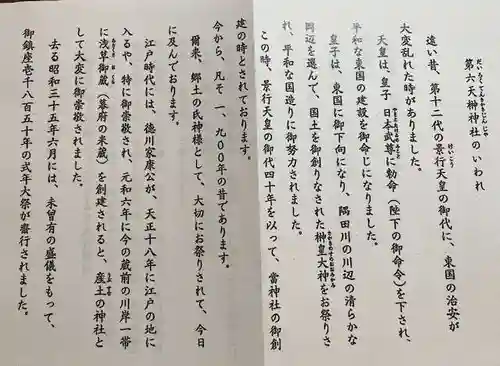 第六天榊神社のいわれ
だいろくてんさかきじんじゃ
遠い昔、第十二代の景行天皇の御代に、東国の治安が
けいこう
大変乱れた時がありました。
天皇は、皇子 日本武尊に勅命（陛下の御命令）を下され、
やまとたけるのみこと
平和な東国の建設を御命じになりました。
皇子は、東国に御下向になり、隅田川の川辺の清らかな
岡辺を選んで、国土を御創りなされた榊皇大神をお祭りさ
れ、平和な国造りに御努力されました。
この時、景行天皇の御代四十年を以って、當神社の御創
建の時とされております。
今から、凡そ 一、九〇〇年の昔であります。
爾来、郷土の氏神様として、大切にお祭りされて、今日
に及んでおります。
江戸時代には、徳川家康公が、天正十八年に江戸の地に
入るや、特に御崇敬され、元和六年に今の蔵前の川岸一帯
に浅草御蔵（幕府の米蔵）を創建されると、産土の神社と
あさくさおくら
うぶすな
して大変に御崇敬されました。
去る昭和三十五年六月には、未曾有の盛儀をもって、
御鎮座壱千八百五十年の式年大祭が齋行されました。